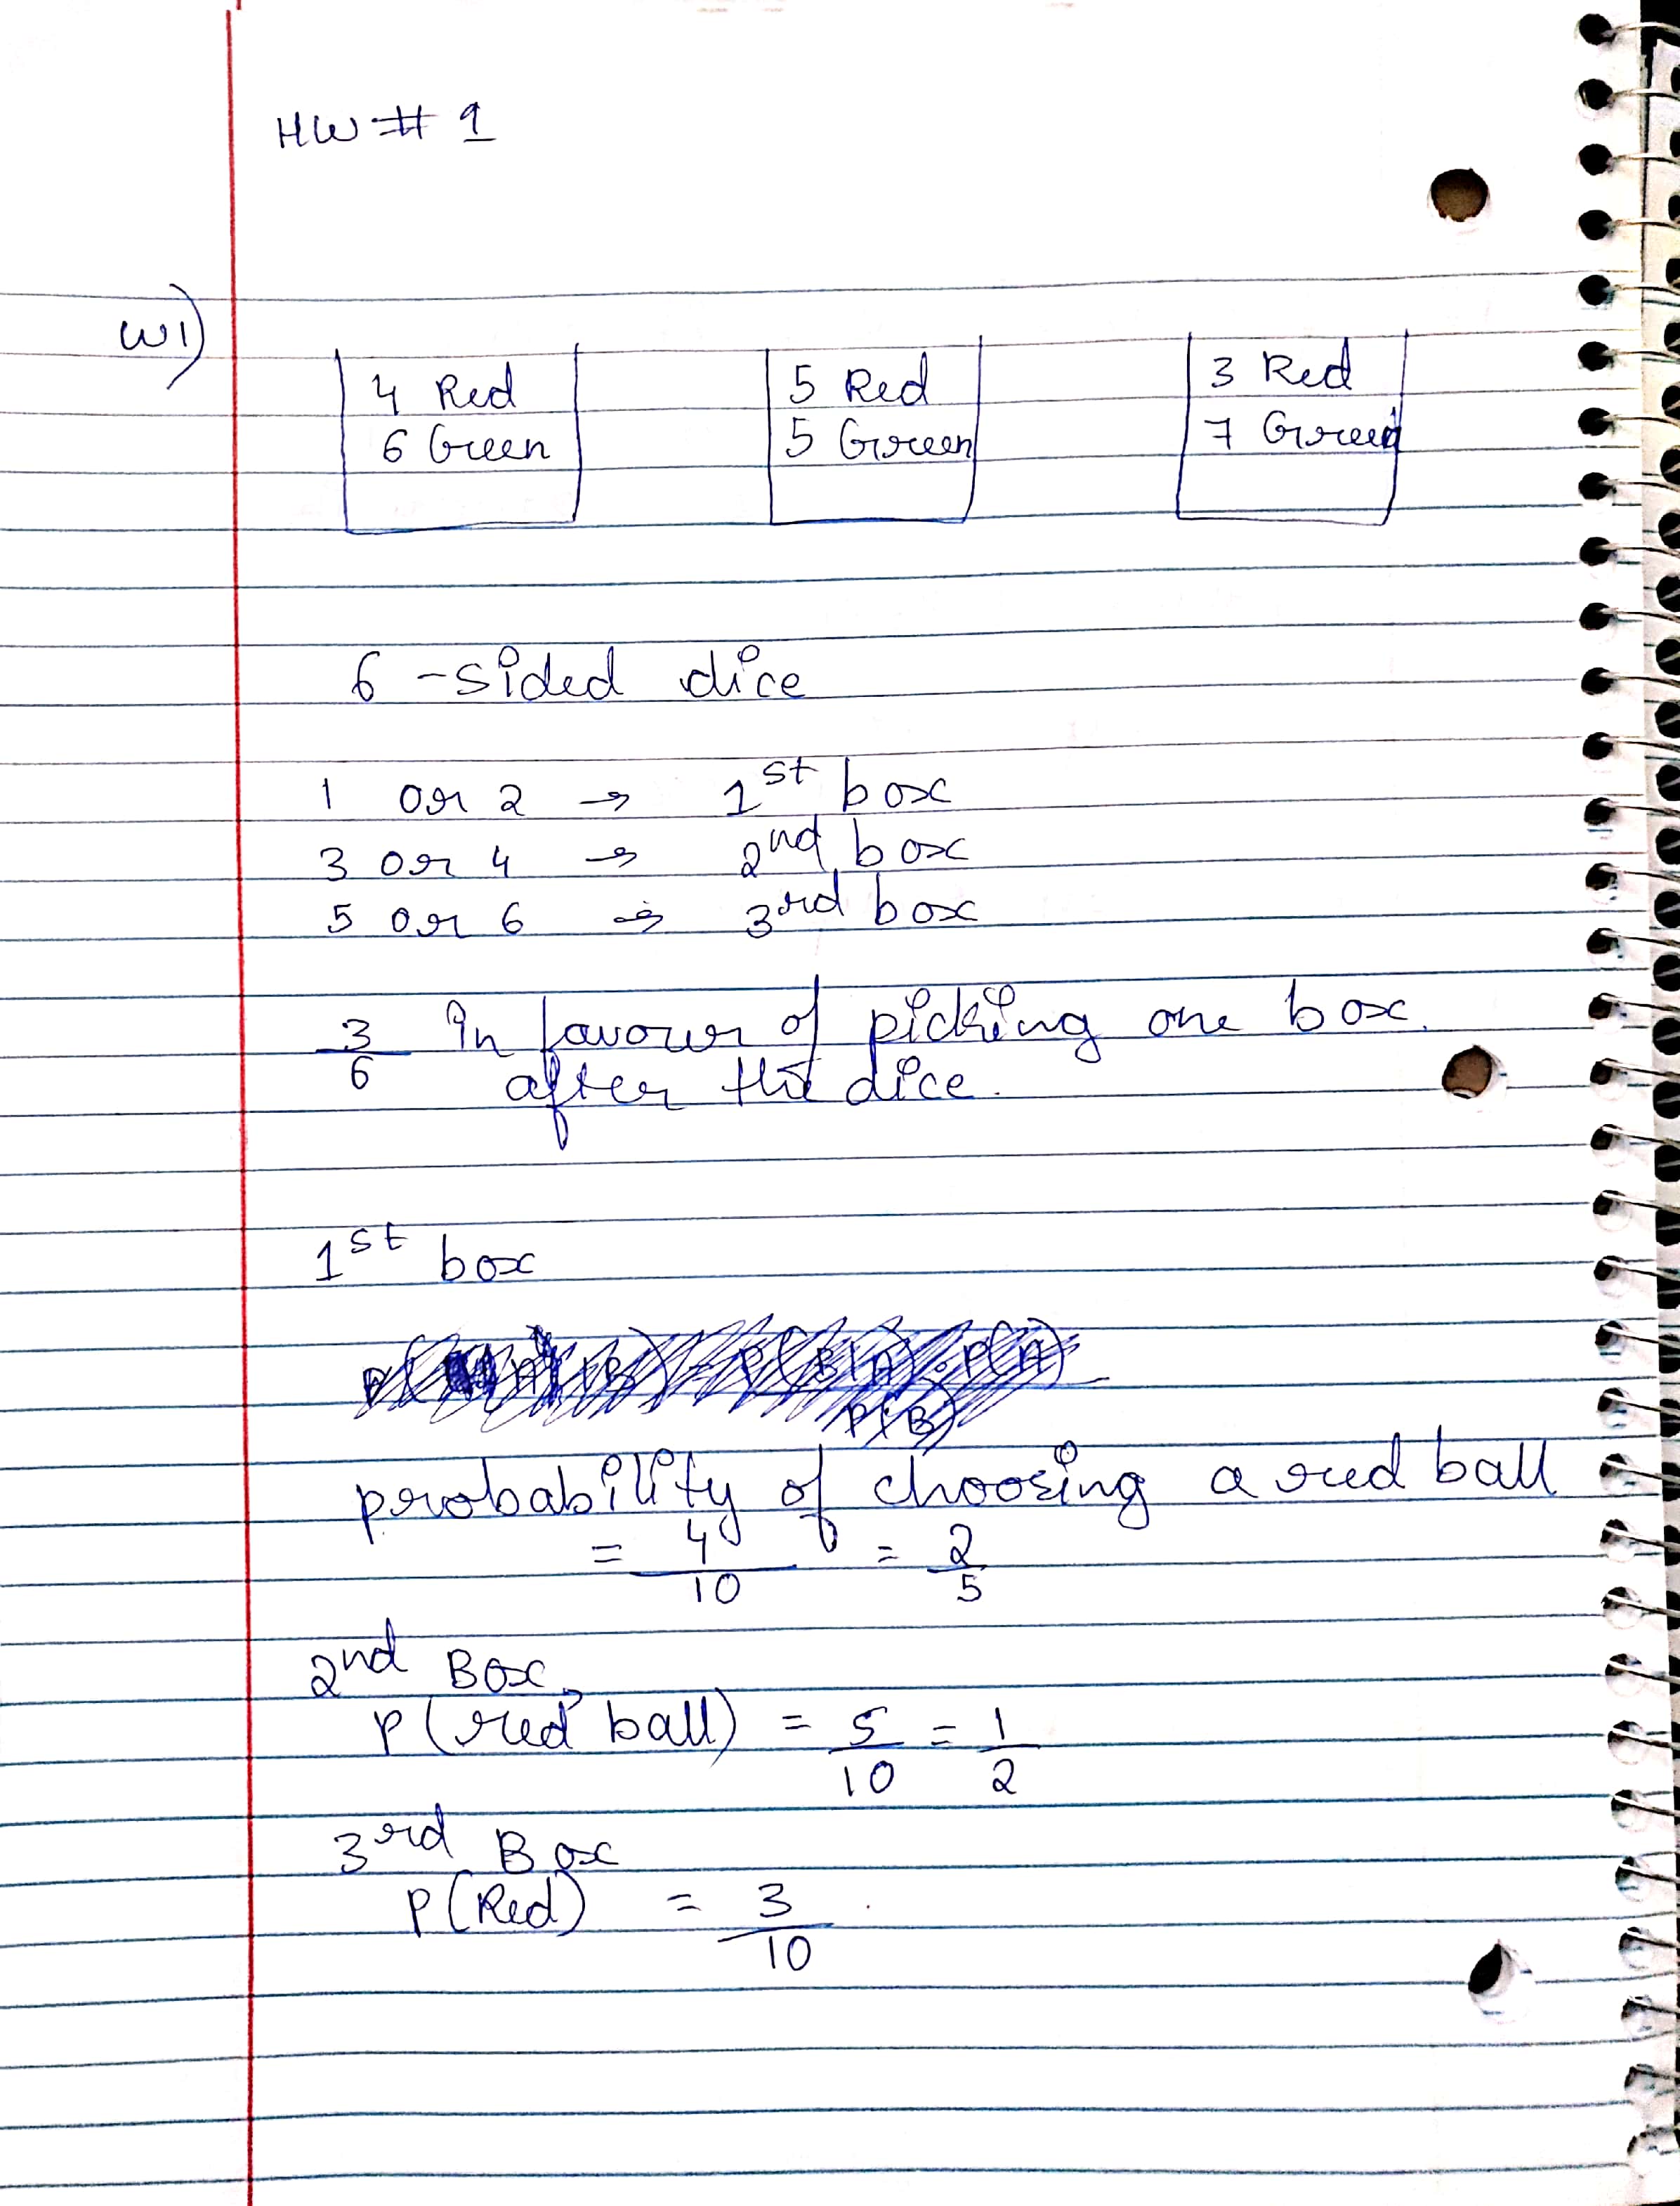 HW # 1
W1)
4 Red 5 Red 3 Red
6 Green 5 Green 7 Green
6-sided dice
1 or 2 → 1st box
3 or 4 → 2nd box
5 or 6 → 3rd box
3/6 in favour of picking one box.
after the dice.
1st box
P(A|B) = P(B|A) · P(A)
P(B)
probability of choosing a red ball
= 4/10 = 2/5
2nd Box
P(red ball) = 5/10 = 1/2
3rd Box
P(Red) = 3/10